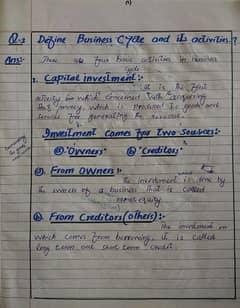 Q-2 Define Business Cycle and its activities?
Ans:- There are four basic activities in business
cycle.
1. Capital investment:-
It is the first
activity in which concerned with acquiring
the money, which is produced to goods and
services for generating the revenue.
Investment comes for two sources:-
ⓐ "Owners" ⓑ "Creditors"
ⓐ From Owners:-
The investment is done by
the owners of a business that is called
owners equity.
ⓑ From Creditors (others):-
The investment in
which comes from borrowing, it is called
long term and short term credit.